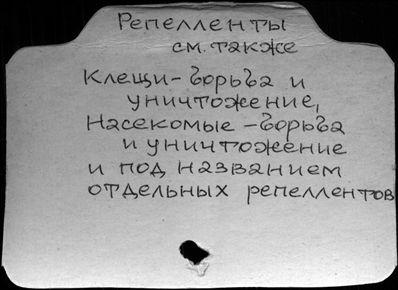 Репелленты
см. также
Клещи-борьба и
уничтожение,
Насекомые - борьба
и уничтожение
и под названием
отдельных репеллентов